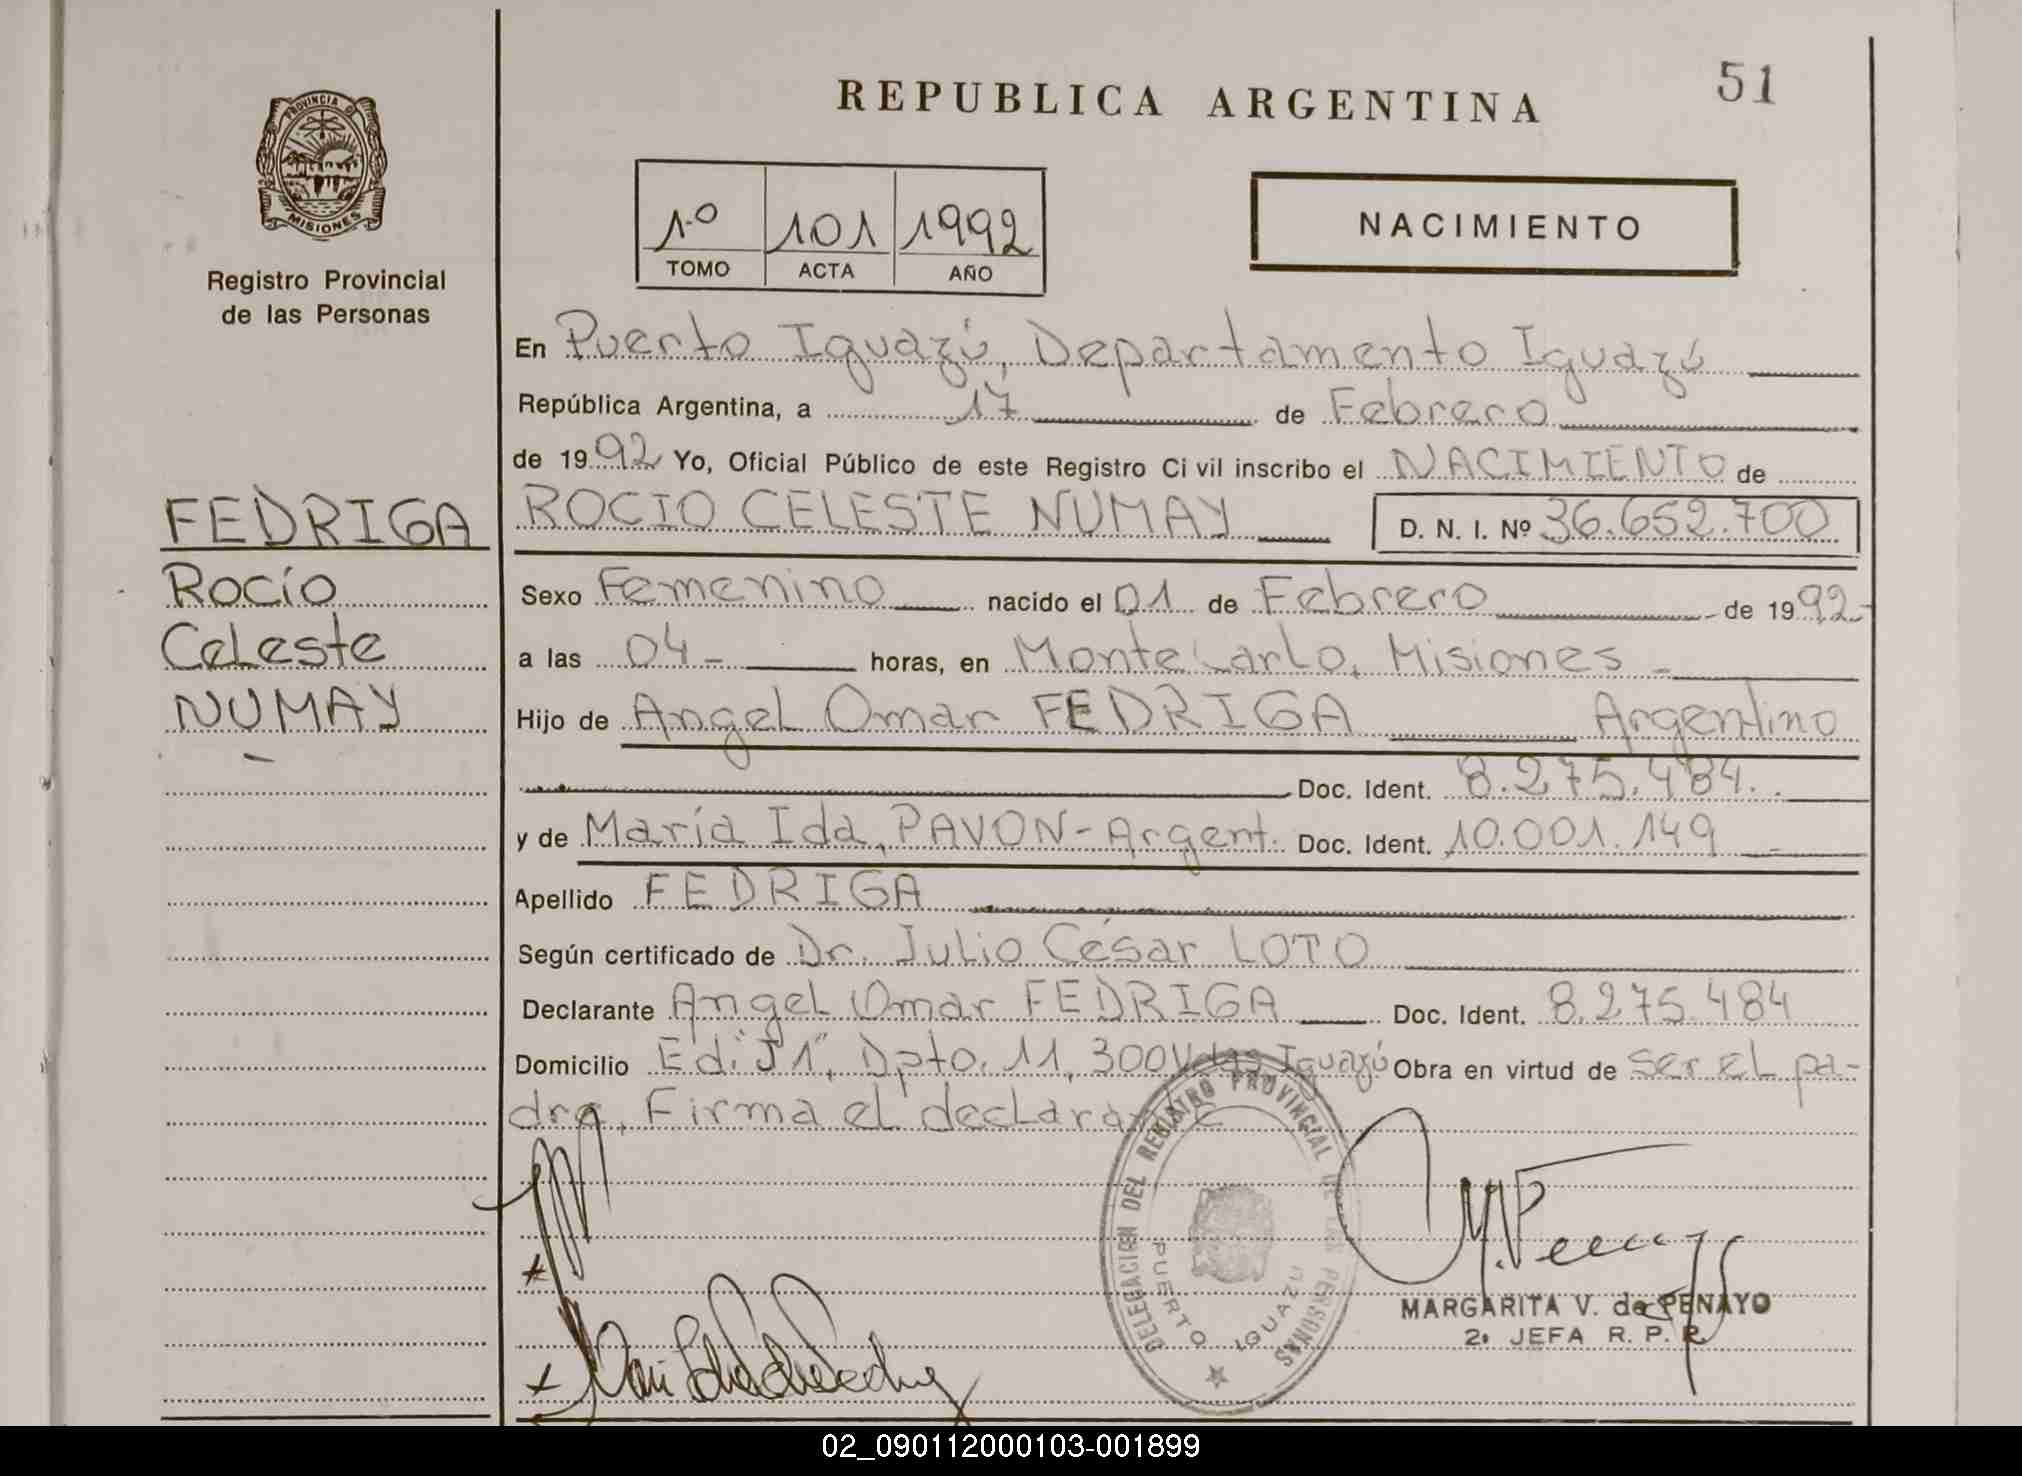 51
REPUBLICA ARGENTINA
PROVINCIA DE
MISIONES
Registro Provincial
de las Personas
1º 101 1992
TOMO ACTA AÑO
NACIMIENTO
En Puerto Iguazú, Departamento Iguazú
República Argentina, a 17 de Febrero
de 1992 Yo, Oficial Público de este Registro Civil inscribo el NACIMIENTO de
ROCIO CELESTE NUMAY D. N. I. Nº 36.652.700
FEDRIGA
Rocío
Celeste
NUMAY
Sexo Femenino nacido el 01 de Febrero de 1992-
a las 04- horas, en Montecarlo, Misiones
Hijo de Angel Omar FEDRIGA Argentino
Doc. Ident. 8.275.484.
y de María Ida, PAVON-Argent. Doc. Ident. 10.001.149
Apellido FEDRIGA
Según certificado de Dr. Julio César LOTO
Declarante Angel Omar FEDRIGA Doc. Ident. 8.275.484
Domicilio Edi. J1", Dpto. 11, 300 Vdas Iguazú Obra en virtud de ser el pa-
dre, Firma el declarante
DELEGACION DEL REGISTRO PROVINCIAL DE LAS PERSONAS
PUERTO IGUAZU
MARGARITA V. de PENAYO
2ª JEFA R. P. P.
02_090112000103-001899